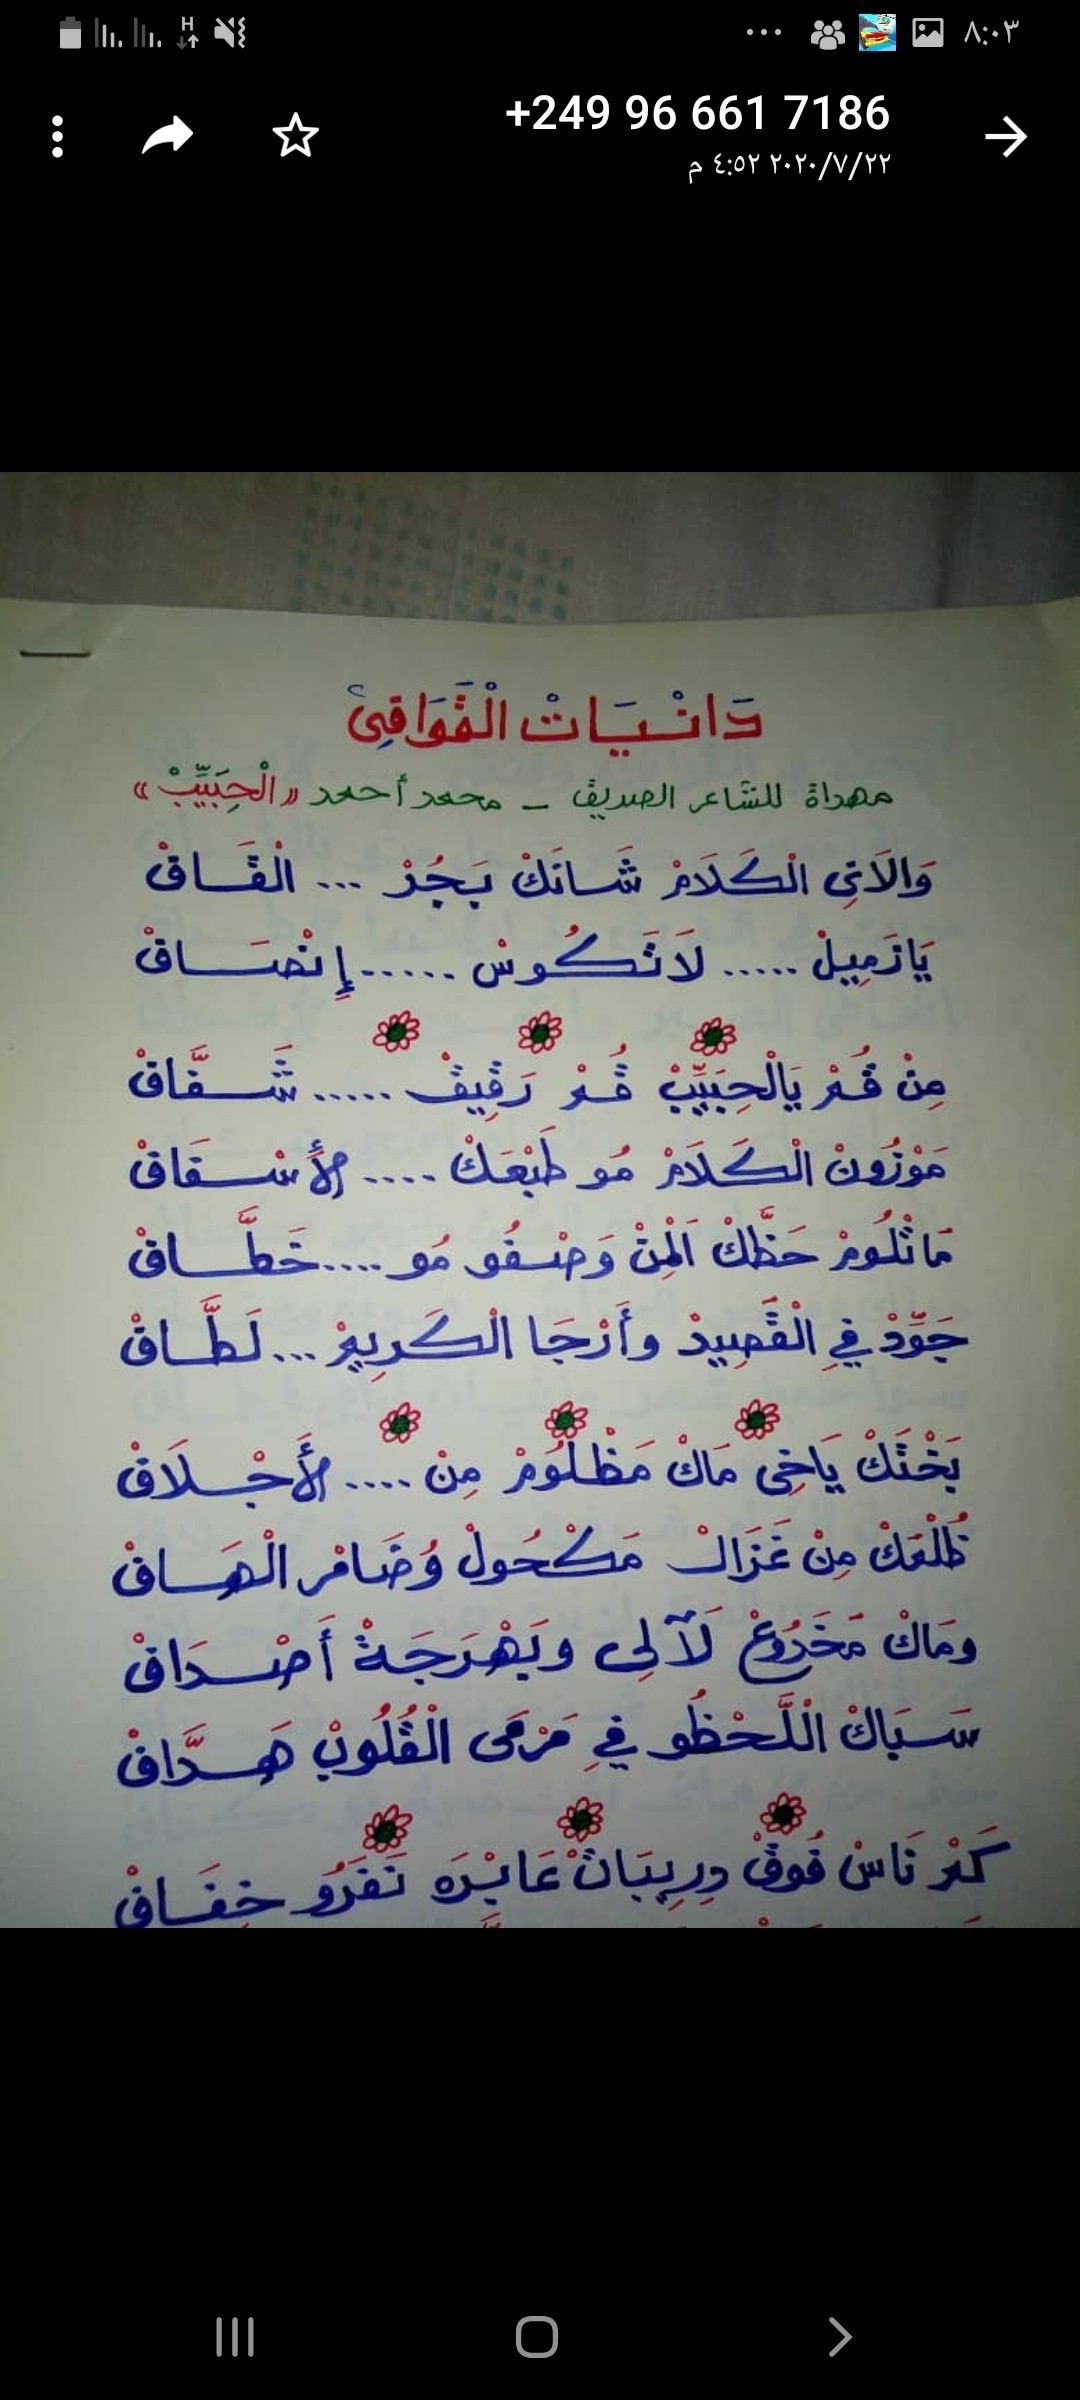 ٨:٠٣
+249 96 661 7186
٢٠٢٠/٧/٢٢ ٤:٥٢ م
دَانْيَاتْ الْقَوَافِي
مهداة للشاعر الصديق - محمد أحمد «الْحِبَيِّبْ»
وَالَاتِي الْكَلَامْ شَانَكْ بَجُرْ ... الْقَافْ
يَازَمِيلْ ..... لَاتَكُوسْ ...... إِنْصَافْ
مِنْ قُمْ يَالْحِبَيِّبْ قُمْ رَقِيقْ ..... شَفَّافْ
مَوْزُونْ الْكَلَامْ مُو طَبْعَكْ .... الأَسْفَافْ
مَاتْلُومْ حَظَّكْ الْمِنْ وَصْفُو مُو .... خَطَّافْ
جَوِّدْ فِي الْقَصِيدْ وأَرْجَا الْكَرِيمْ ... لَطَّافْ
بَخْتَكْ يَاخِي مَاكْ مَظْلُومْ مِنْ .... الأَجْلَافْ
ظُلْعَكْ مِنْ غَزَالْ مَكْحُولْ وُضَامْر الْهَافْ
ومَاكْ مَخَرُوعْ لَآلِي وبَهْرَجَةْ أَصْدَافْ
سَبَاكْ الْلَّحْظُو فِي مَرْمَى الْقُلُوبْ هَدَّافْ
كَمْ نَاسْ فُوقْ دِرِيبَاتْ عَابْرَه نَفَرُو خِفَافْ